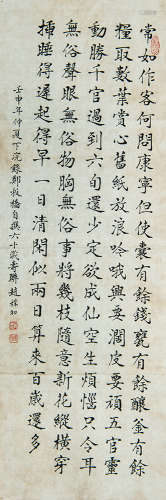 常如作客何問康寧但使囊有餘錢甕有餘釀釜有餘
糧取數葉賞心舊紙放浪吟哦興要濶皮要頑五官靈
動勝千官過到六旬還少定欲成仙空生煩惱只令耳
無俗聲眼無俗物胸無俗事將幾枝隨意新花縱橫穿
插睡得遲起得早一日清閒似兩日算來百歲還多
壬申年仲夏下浣錄鄭板橋自撰六十歲壽聯趙